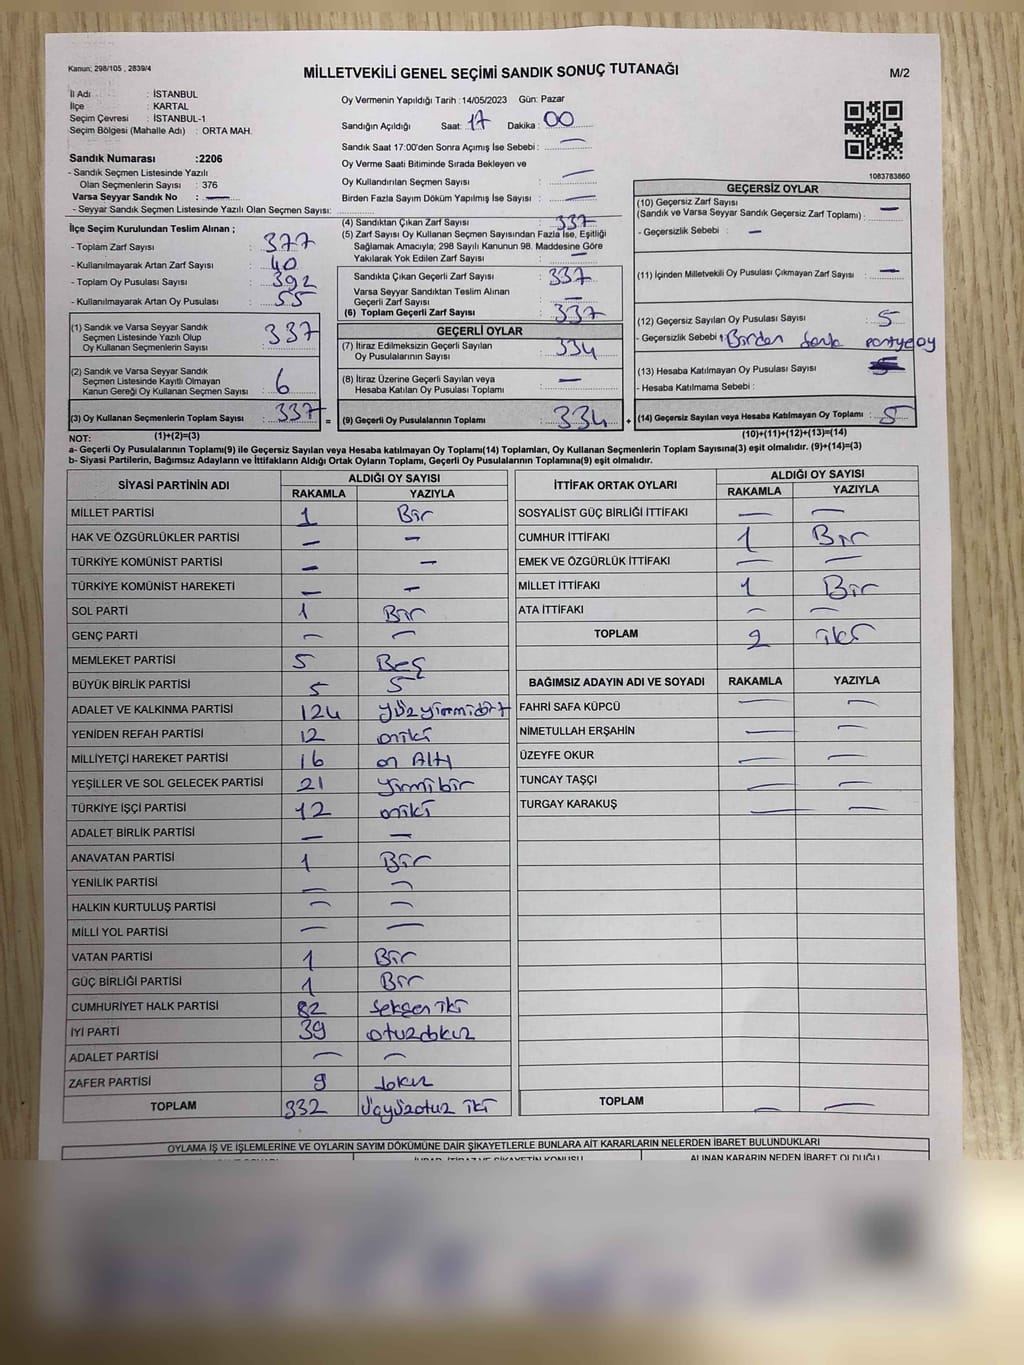 Kanun; 298/105 , 2839/4
MİLLETVEKİLİ GENEL SEÇİMİ SANDIK SONUÇ TUTANAĞI
M/2
İl Adı : İSTANBUL
İlçe : KARTAL
Seçim Çevresi : İSTANBUL-1
Seçim Bölgesi (Mahalle Adı) : ORTA MAH.
Sandık Numarası :2206
- Sandık Seçmen Listesinde Yazılı
Olan Seçmenlerin Sayısı : 376
Varsa Seyyar Sandık No : —
- Seyyar Sandık Seçmen Listesinde Yazılı Olan Seçmen Sayısı:
Oy Vermenin Yapıldığı Tarih :14/05/2023 Gün: Pazar
Sandığın Açıldığı Saat: 17 Dakika : 00
Sandık Saat 17:00'den Sonra Açımış İse Sebebi : —
Oy Verme Saati Bitiminde Sırada Bekleyen ve
Oy Kullandırılan Seçmen Sayısı : —
Birden Fazla Sayım Döküm Yapılmış İse Sayısı : —
1083783860
İlçe Seçim Kurulundan Teslim Alınan ;
- Toplam Zarf Sayısı : 377
- Kullanılmayarak Artan Zarf Sayısı : 40
- Toplam Oy Pusulası Sayısı : 392
- Kullanılmayarak Artan Oy Pusulası : 55
(1) Sandık ve Varsa Seyyar Sandık
Seçmen Listesinde Yazılı Olup
Oy Kullanan Seçmenlerin Sayısı : 337
(2) Sandık ve Varsa Seyyar Sandık
Seçmen Listesinde Kayıtlı Olmayan
Kanun Gereği Oy Kullanan Seçmen Sayısı : 6
(3) Oy Kullanan Seçmenlerin Toplam Sayısı : 337
(4) Sandıktan Çıkan Zarf Sayısı : 337
(5) Zarf Sayısı Oy Kullanan Seçmen Sayısından Fazla İse, Eşitliği
Sağlamak Amacıyla; 298 Sayılı Kanunun 98. Maddesine Göre
Yakılarak Yok Edilen Zarf Sayısı : —
Sandıkta Çıkan Geçerli Zarf Sayısı : 337
Varsa Seyyar Sandıktan Teslim Alınan
Geçerli Zarf Sayısı : —
(6) Toplam Geçerli Zarf Sayısı : 337
GEÇERLİ OYLAR
(7) İtiraz Edilmeksizin Geçerli Sayılan
Oy Pusulalarının Sayısı : 334
(8) İtiraz Üzerine Geçerli Sayılan veya
Hesaba Katılan Oy Pusulası Toplamı : —
= (9) Geçerli Oy Pusulalarının Toplamı : 334 +
GEÇERSİZ OYLAR
(10) Geçersiz Zarf Sayısı
(Sandık ve Varsa Seyyar Sandık Geçersiz Zarf Toplamı) : —
- Geçersizlik Sebebi : —
(11) İçinden Milletvekili Oy Pusulası Çıkmayan Zarf Sayısı : —
(12) Geçersiz Sayılan Oy Pusulası Sayısı : 5
- Geçersizlik Sebebi : Birden fazla partiye oy
(13) Hesaba Katılmayan Oy Pusulası Sayısı :
- Hesaba Katılmama Sebebi :
(14) Geçersiz Sayılan veya Hesaba Katılmayan Oy Toplamı : 5
NOT: (1)+(2)=(3)
(10)+(11)+(12)+(13)=(14)
a- Geçerli Oy Pusulalarının Toplamı(9) ile Geçersiz Sayılan veya Hesaba katılmayan Oy Toplamı(14) Toplamları, Oy Kullanan Seçmenlerin Toplam Sayısına(3) eşit olmalıdır. (9)+(14)=(3)
b- Siyasi Partilerin, Bağımsız Adayların ve İttifakların Aldığı Ortak Oyların Toplamı, Geçerli Oy Pusulalarının Toplamına(9) eşit olmalıdır.
SİYASİ PARTİNİN ADI ALDIĞI OY SAYISI
RAKAMLA YAZIYLA
MİLLET PARTİSİ 1 Bir
HAK VE ÖZGÜRLÜKLER PARTİSİ — —
TÜRKİYE KOMÜNİST PARTİSİ — —
TÜRKİYE KOMÜNİST HAREKETİ — —
SOL PARTİ 1 Bir
GENÇ PARTİ — —
MEMLEKET PARTİSİ 5 Beş
BÜYÜK BİRLİK PARTİSİ 5 5
ADALET VE KALKINMA PARTİSİ 124 yüzyirmidört
YENİDEN REFAH PARTİSİ 12 oniki
MİLLİYETÇİ HAREKET PARTİSİ 16 on Altı
YEŞİLLER VE SOL GELECEK PARTİSİ 21 yirmibir
TÜRKİYE İŞÇİ PARTİSİ 12 oniki
ADALET BİRLİK PARTİSİ — —
ANAVATAN PARTİSİ 1 Bir
YENİLİK PARTİSİ — —
HALKIN KURTULUŞ PARTİSİ — —
MİLLİ YOL PARTİSİ — —
VATAN PARTİSİ 1 Bir
GÜÇ BİRLİĞİ PARTİSİ 1 Bir
CUMHURİYET HALK PARTİSİ 82 seksen iki
İYİ PARTİ 39 otuzdokuz
ADALET PARTİSİ — —
ZAFER PARTİSİ 9 dokuz
TOPLAM 332 üçyüzotuz iki
İTTİFAK ORTAK OYLARI ALDIĞI OY SAYISI
RAKAMLA YAZIYLA
SOSYALİST GÜÇ BİRLİĞİ İTTİFAKI — —
CUMHUR İTTİFAKI 1 Bir
EMEK VE ÖZGÜRLÜK İTTİFAKI — —
MİLLET İTTİFAKI 1 Bir
ATA İTTİFAKI — —
TOPLAM 2 iki
BAĞIMSIZ ADAYIN ADI VE SOYADI RAKAMLA YAZIYLA
FAHRİ SAFA KÜPCÜ — —
NİMETULLAH ERŞAHİN — —
ÜZEYFE OKUR — —
TUNCAY TAŞÇI — —
TURGAY KARAKUŞ — —
TOPLAM — —
OYLAMA İŞ VE İŞLEMLERİNE VE OYLARIN SAYIM DÖKÜMÜNE DAİR ŞİKAYETLERLE BUNLARA AİT KARARLARIN NELERDEN İBARET BULUNDUKLARI
ALINAN KARARIN NEDEN İBARET OLDUĞU